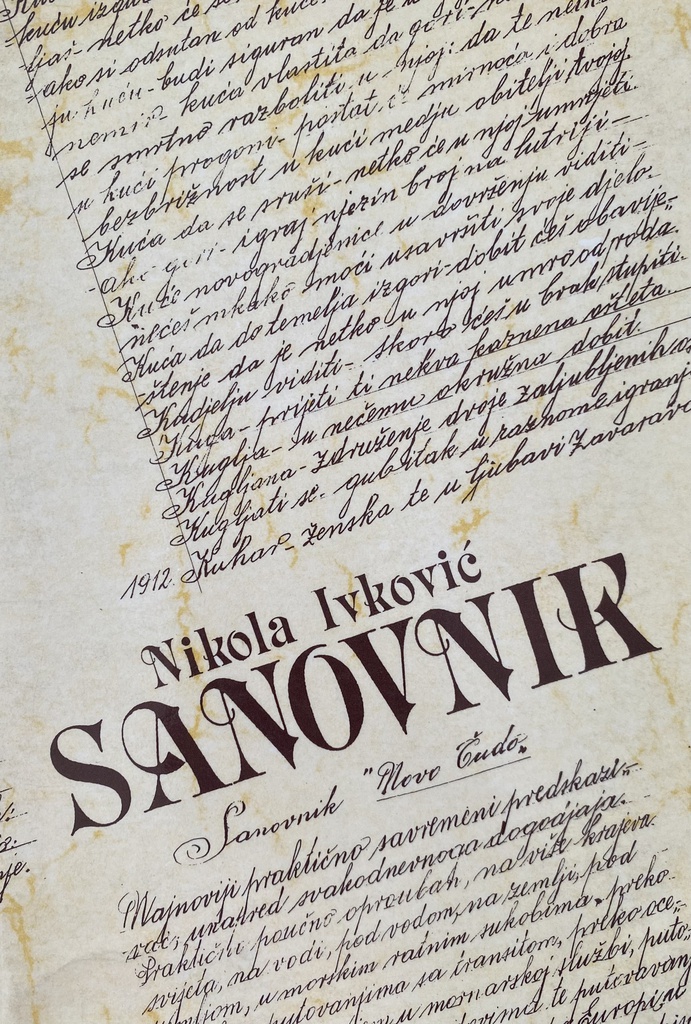 kuću izgu
ljaš- netko će se
ako si odsutan od kuće
ju kuću- budi siguran da je
nemir- kuća vlastita da gori-
se smrtno razboliti u njoj: da te netko
u kući progoni- postat će mirnoća i dobra
bezbrižnost u kući medju obitelji tvojoj
Kuća da se sruši- netko će u njoj umrijeti.
-ako gori- igraj njezin broj na lutriji-
Kuće novogradjenice u dovršenju viditi-
nećeš nikako moći usavršiti svoje djelo.
Kuća da do temelja izgori- dobit ćeš obavije-
štenje da je netko u njoj umro od roda.
Kudjelju viditi- skoro ćeš u brak stupiti.
Kuga- prijeti ti nekva kaznena ošteta.
Kuglja- su nečemu okružna dobit.
Kugljana- združenje dvoje zaljubljenih os
Kugljati se- gubitak u raznome igranj
1912. Kuhar- ženska te u ljubavi zavarava
Nikola Ivković
SANOVNIK
Sanovnik "Novo Čudo„
Najnoviji praktično savremeni predskazi-
vač, unapred svakodnevnoga dogodjaja.
Praktični poučno oprobah, na više krajeva
svijeta, na vodi, pod vodom, na zemlji, pod
zemljom, u morskim ratnim sukobima, preko
putovanjima sa transitom, preko oce-
u mornarskoj službi, puto-
te putovavan
Europi u